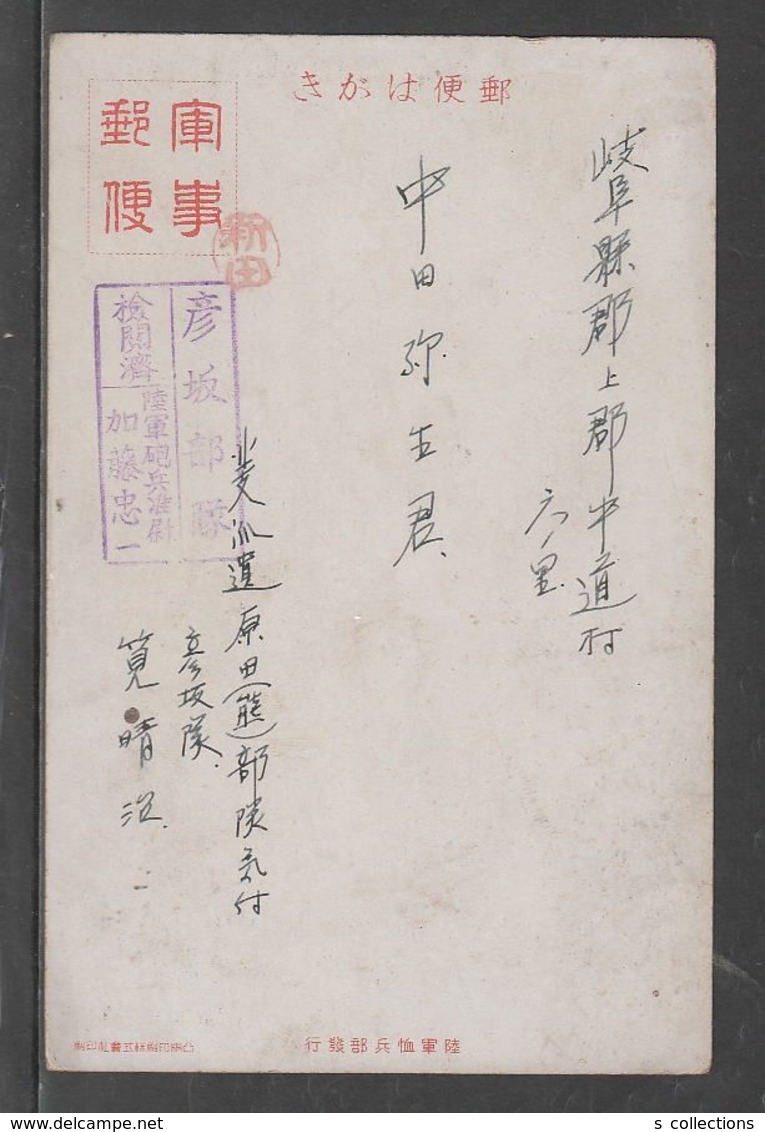 郵便はがき
軍事
郵便
新田
岐阜縣郡上郡中道村
六ノ里
中田弥生君
彦坂部隊
検閲濟
陸軍砲兵准尉
加藤忠一
北支派遣原田(熊)部隊気付
彦坂隊
筧晴治
陸軍恤兵部發行
s collections